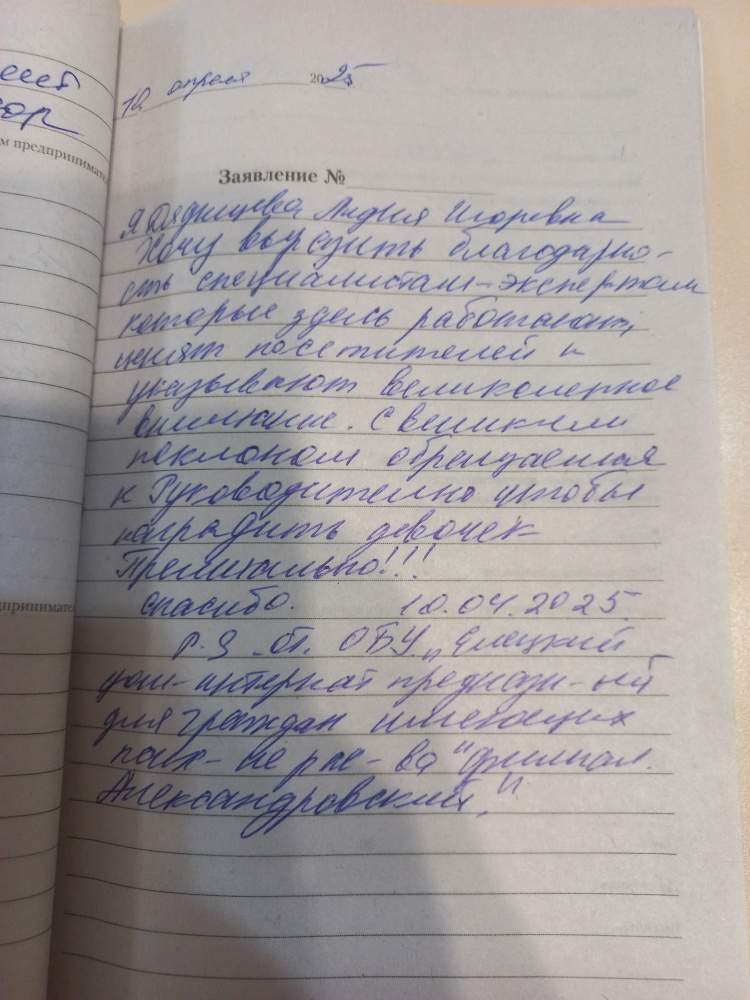 еет
ом предпринимате
дпринимате
10 апреля 2025
Заявление №
Я Лидия Игоревна
Хочу выразить благодарно-
сть специалистам-экспертам
которые здесь работают,
ценят посетителей и
указывают великолепное
внимание. С великим
поклоном обращаемся
к Руководителю чтобы
наградить девочек
Премиально!!!
спасибо. 10.04.2025.
P.S от. ОБУ „Елецкий
дом-интернат предназн-ый
для граждан имеющих
псих-ие рас-ва" филиал.
Александровский."